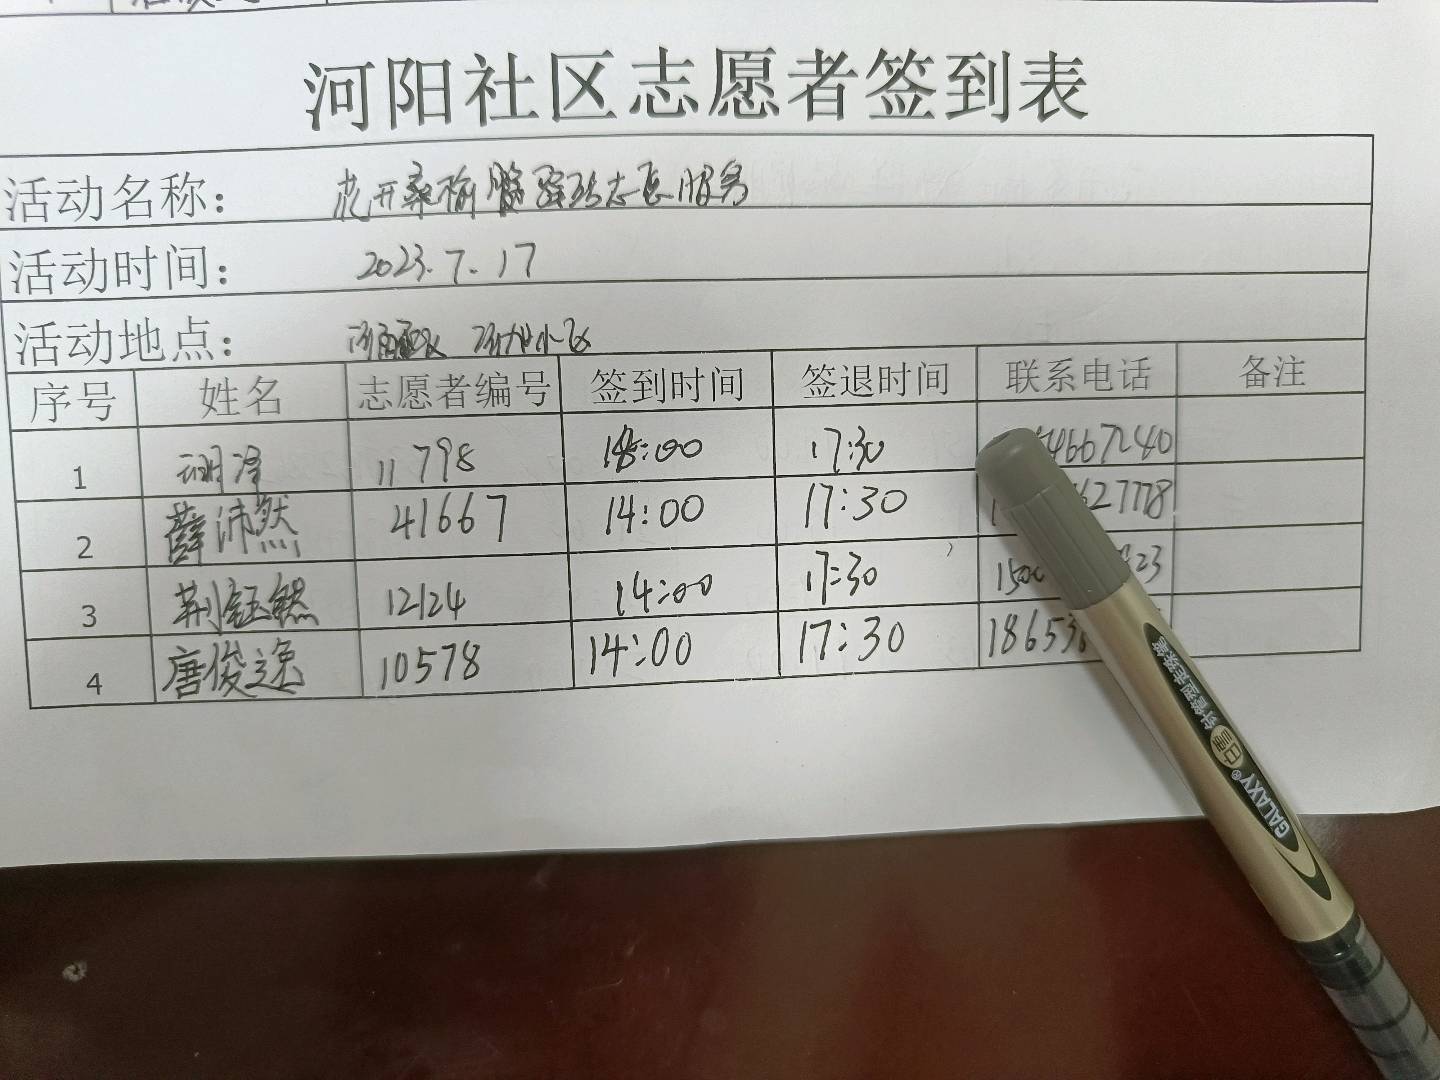 河阳社区志愿者签到表
活动名称： 花开桑榆 志愿服务
活动时间： 2023.7.17
活动地点： 小区
序号 姓名 志愿者编号 签到时间 签退时间 联系电话 备注
1 11798 :00 17:30 4667240
2 薛沛然 41667 14:00 17:30 1 627778
3 荆钰然 12124 14:00 17:30 150 23
4 唐俊逸 10578 14:00 17:30 18653
针管型走珠笔
GALAXY®